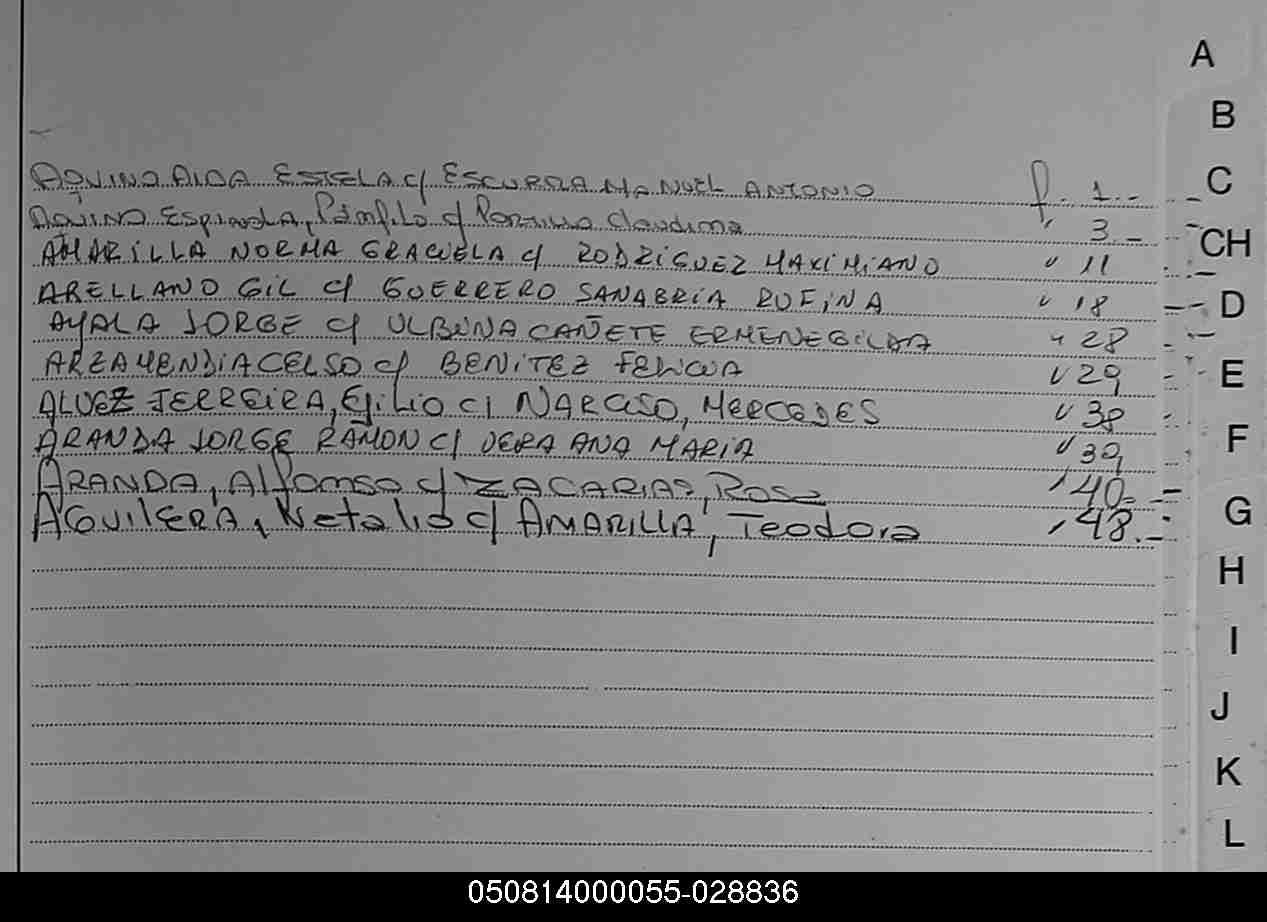 AQUINO AIDA ESTELA c/ ESCURRA MANUEL ANTONIO f. 1.-
AQUINO Espinola, Pámfilo c/ Portillo Claudima " 3.-
AMARILLA NORMA GRACIELA c/ RODRIGUEZ MAXIMIANO " 11
ARELLANO GIL c/ GUERRERO SANABRIA RUFINA " 18
AYALA JORGE c/ CAÑETE ERMENEGILDA " 28
ARZAMENDIA CELSO c/ BENITEZ FELICIA " 29
ALVEZ FERREIRA, Egilio c/ NARCISO, MERCEDES " 38
ARANDA JORGE RAMON c/ VERA ANA MARIA " 39
ARANDA, Alfonso c/ ZACARIAS, Rosa " 40.-
AGUILERA, Natalio c/ AMARILLA, Teodora " 48.-
A
B
C
CH
D
E
F
G
H
I
J
K
L
050814000055-028836